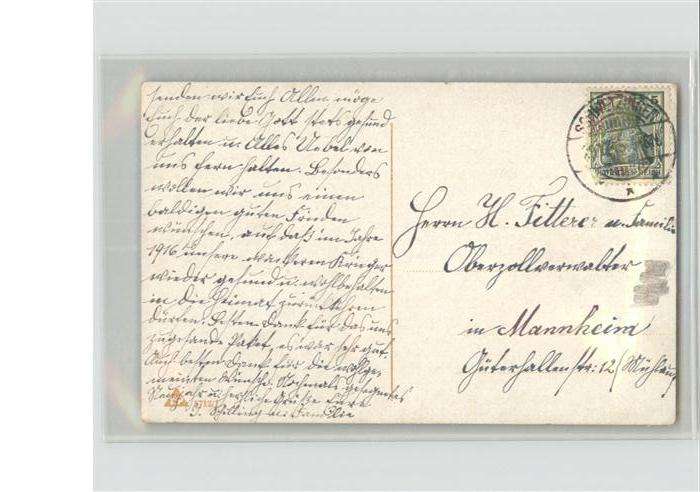 senden wir Euch Allen, möge
Euch der liebe Gott stets gesund
erhalten u. Alles Uebel von
uns fern halten. Besonders
wollen wir uns einen
baldigen guten Frieden
wünschen, auch daß im Jahre
1916 unsere wackeren Krieger
wieder gesund u. wohlbehalten
in die Heimat zurückkehren
dürfen. Besten Dank für das uns
zugesandte Paket, es war sehr gut.
Auch besten Dank für die
Nochmals gesegnetes
Neujahr u. herzliche Grüße Eure
Familie
Herrn H. Fitterer u. Familie
Oberzollverwalter
in Mannheim
Güterhallenstr: 12 (Mühlau